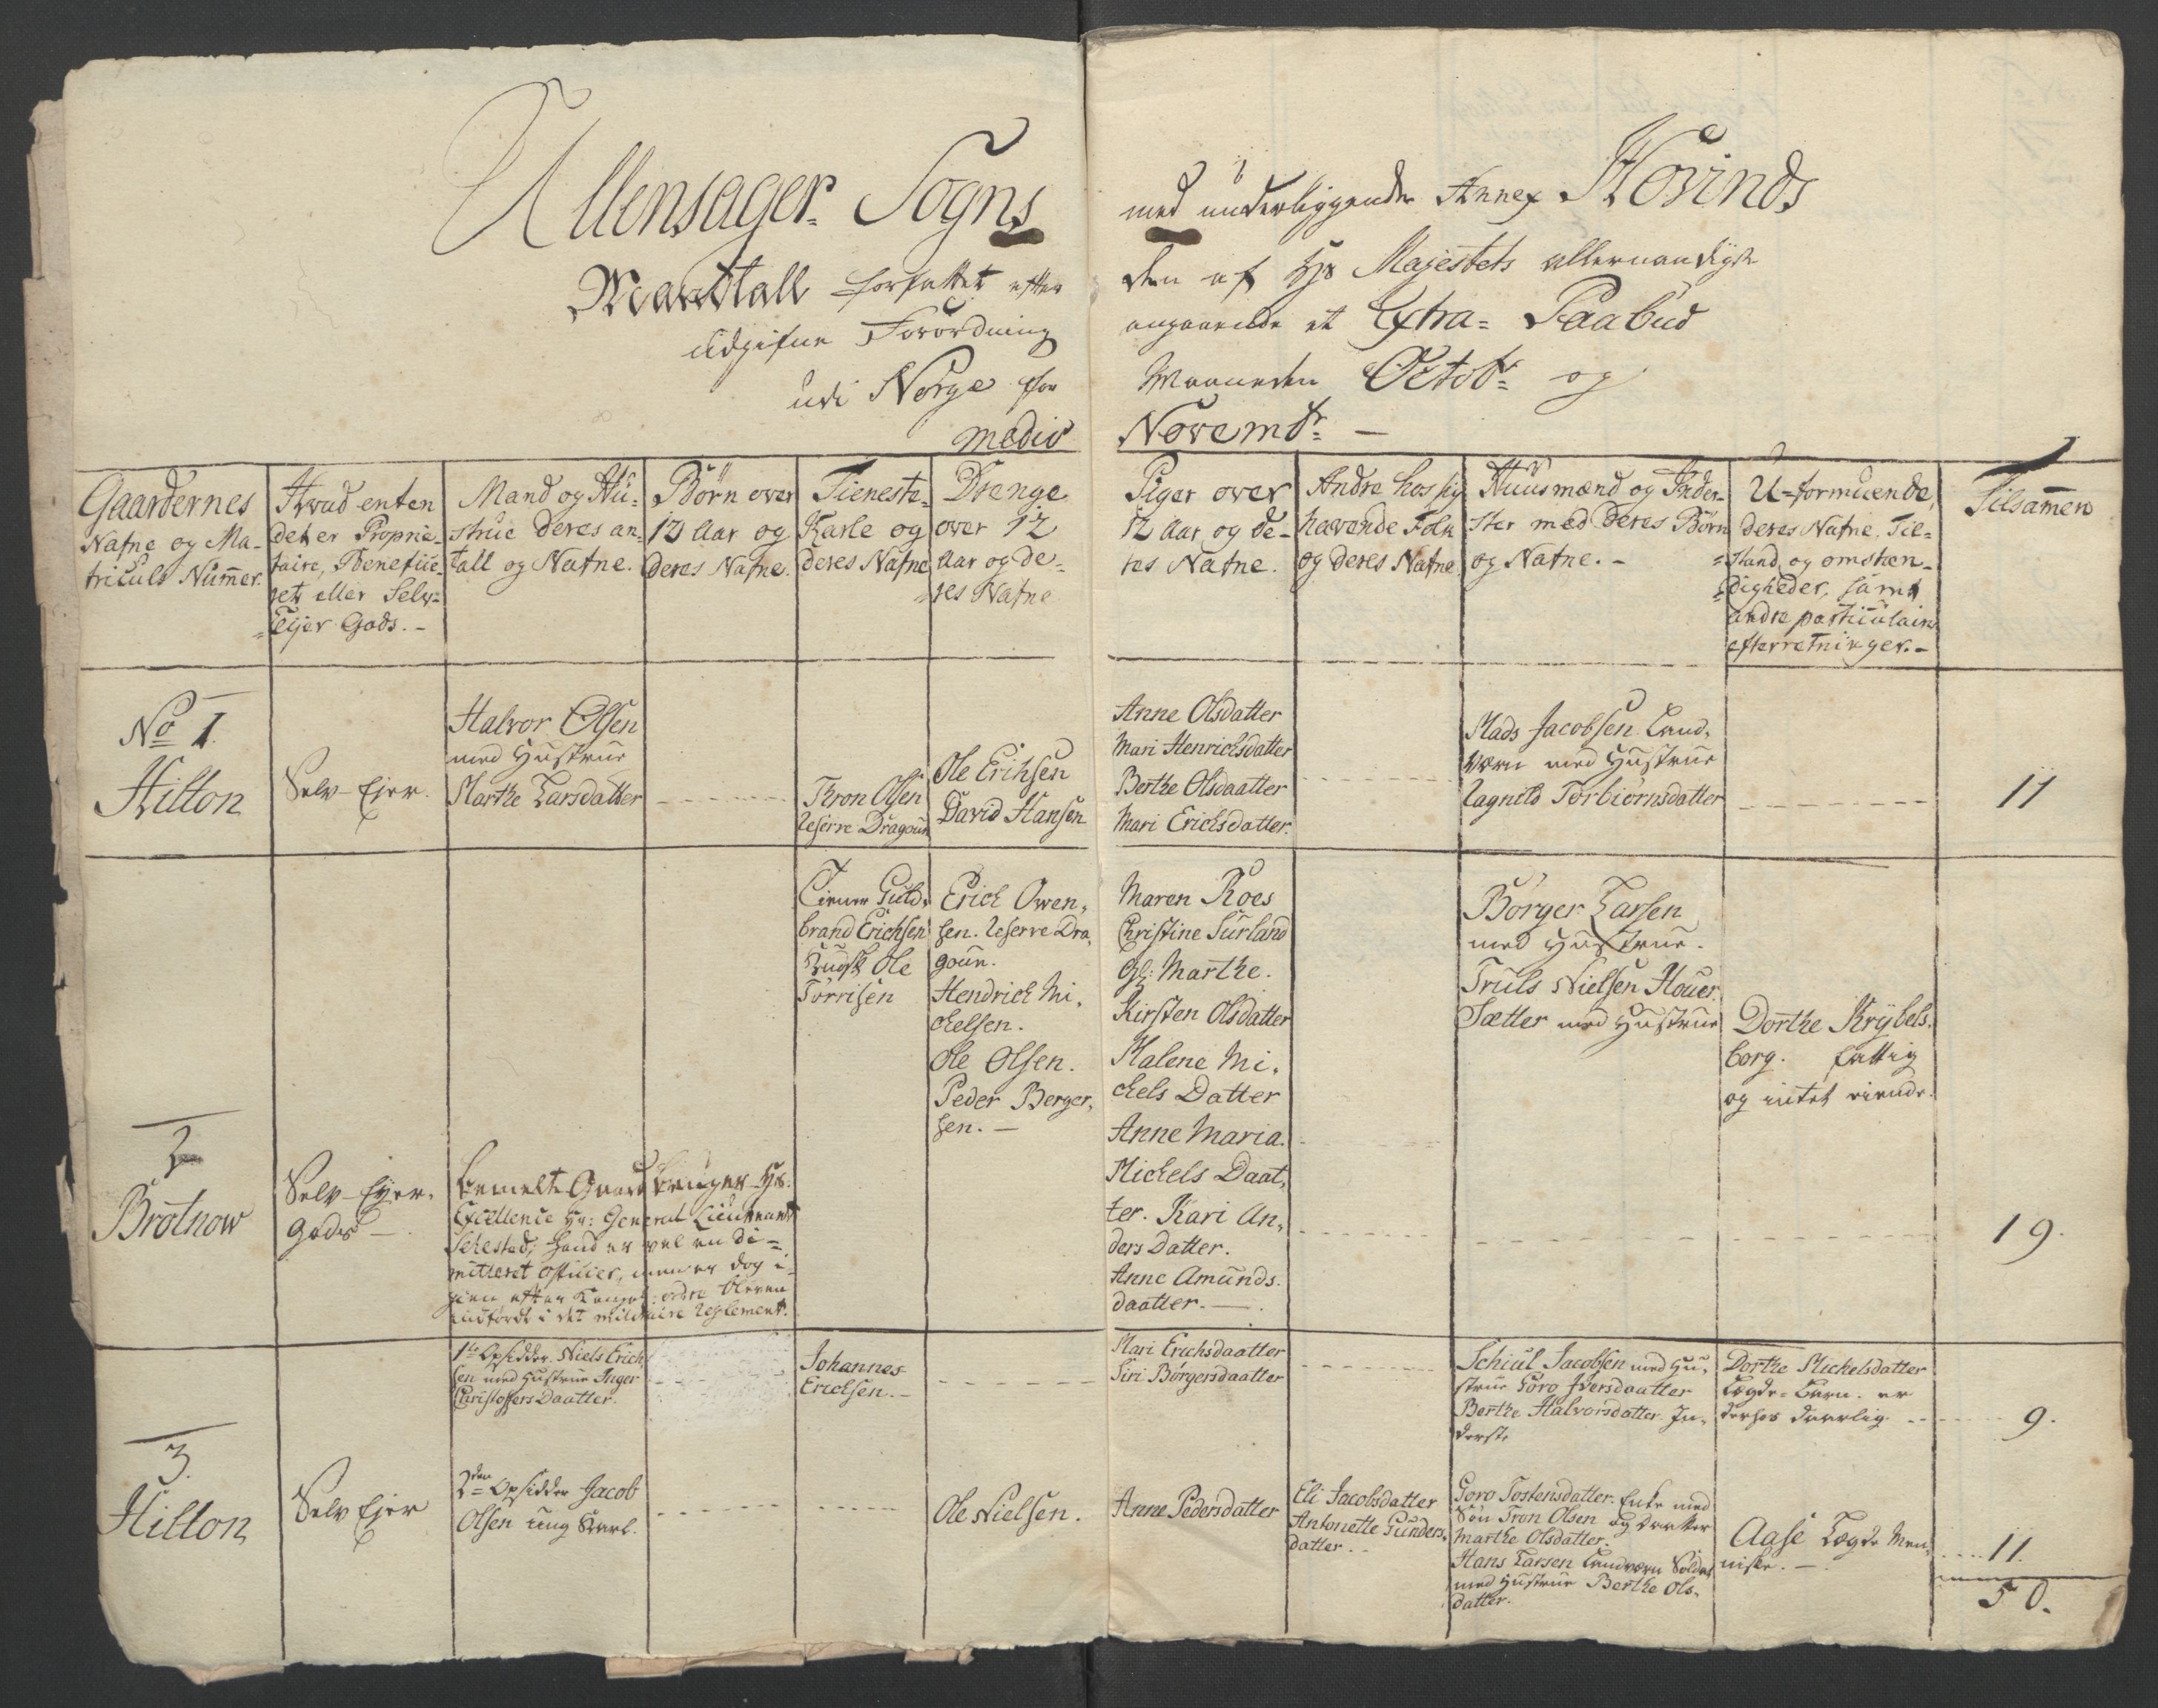 Ullensager Sogns
med underliggende Annex Hovinds
Mandtall forfattet efter
den af Hs Majestets allernaadigste
udgifne Forordning
angaaende et Extra= Paabud
udi Norge for
Maaneden Octobr: og
medio
Novembr: —
Gaardernes
Nafne og Ma-
triculs Nummer.
Hvad enten
det er Proprie-
taire, Beneficie-
ret eller Selv=
=Ejer Gods. -
Mand og Hu-
strue deres an-
tall og Nafne.
Börn over
12 Aar og
deres Nafne.
Tieneste-
Karle og
deres Nafne
Drenge
over 12
Aar og de-
res Nafne
Piger over
12 Aar og de-
res Nafne.
Andre hos sig
havende Folk
og deres Nafne
Huusmænd og Inder-
ster med deres Børn
og Nafne. -
U=formuende,
deres Nafne, Til=
=stand og omstæn-
=digheder, samt
andre particulaire
efterretninger. -
Tilsammen
No 1.
Hilton
Selv-Ejer.
Halvor Olsen
med Hustrue
Marthe Larsdatter
Thron Olsen
Reserve Dragoun
Ole Erichsen
David Hansen
Anne Olsdatter
Mari Henrichsdatter
Berthe Olsdaatter
Mari Erichsdatter.
Mads Jacobsen Land-
værn med Hustrue
Ragnild Torbiörnsdatter
11
2
Brotnow
Selv-Ejer-
Gods —
bemelte Gaard bruges Hs.
Excellence Hr: General Lieutnant
Sehested; hand er vel en di=
mitteret officier, men er dog i-
gien efter Kongel: ordre bleven
indfördt i det militaire Reglement.
Tiener Guld-
brand Erichsen
Kudsk Ole
Törrisen
Erich Owen-
sen. Reserve Dra-
goun.
Hendrich Mi-
chelsen.
Ole Olsen.
Peder Berger-
sen. —
Maren Roes
Christine Surland
Gl: Marthe.
Kirsten Olsdatter
Malene Mi-
chels Datter
Anne Maria
Michels Daat-
ter. Kari An-
ders Datter.
Anne Amunds.
daatter. —
Börger Larsen
med Hustrue.
Truls Nielsen Houer
Sætter med Hustrue
Dorthe Krybels-
borg. fattig
og intet eiende.
19.
3.
Hilton
Selv Ejer
1te Opsidder. Niels Erich-
sen med Hustrue Inger
Christoffers Daatter.
Johannes
Erichsen. -
Mari Erichsdaatter
Siri Börgersdaatter
Schiul Jacobsen med Hu-
strue Goro Iversdaatter
Berthe Halvorsdatter In-
derste
Dorthe Michelsdatter
Lægde-Barn. er
derhos daarlig.
9.
2den Opsidder Jacob
Olsen ung Karl.
Ole Nielsen.
Anne Pedersdatter
Eli Jacobsdatter
Antonette Gunders-
datter. -
Goro Tostensdatter. Enke med
Sön Tron Olsen og daatter
Marthe Olsdatter.
Hans Larsen Landværn Soldat
med Hustrue Berthe Ols-
datter.
Aase Lægde Men-
niske. —
11.
50.